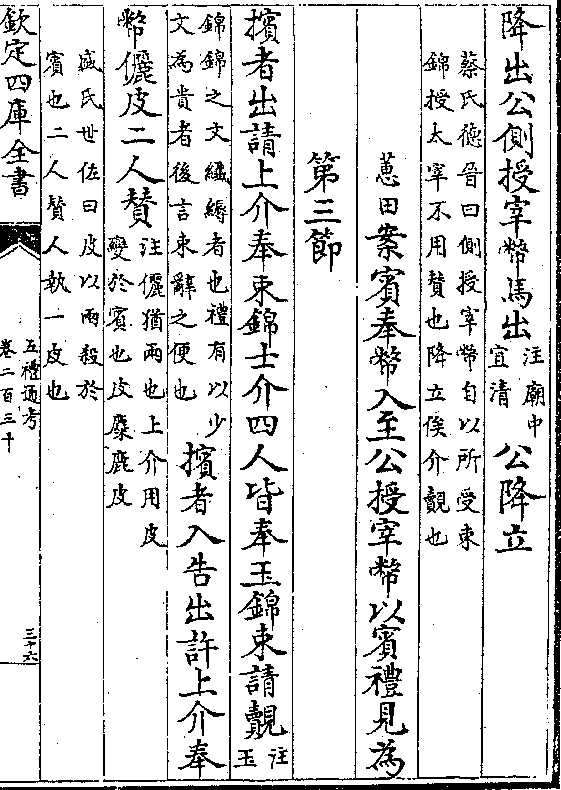 降出公側授宰幣馬出注廟中宜清公降立
蔡氏德晉曰側授宰幣自以所受束
錦授太宰不用贊也降立俟介覿也
蕙田案賓奉幣入至公授宰幣以賓禮見為
第三節
擯者出請上介奉束錦士介四人皆奉玉錦束請覿注玉
錦錦之文纖縟者也禮有以少
文為貴者後言束辭之便也擯者入告出許上介奉
幣儷皮二人贊注儷猶兩也上介用皮
變於賓也皮麋鹿皮
盛氏世佐曰皮以兩殺於
賓也二人贊人執一皮也
欽定四庫全書
五禮通考
卷二百三十
三十六